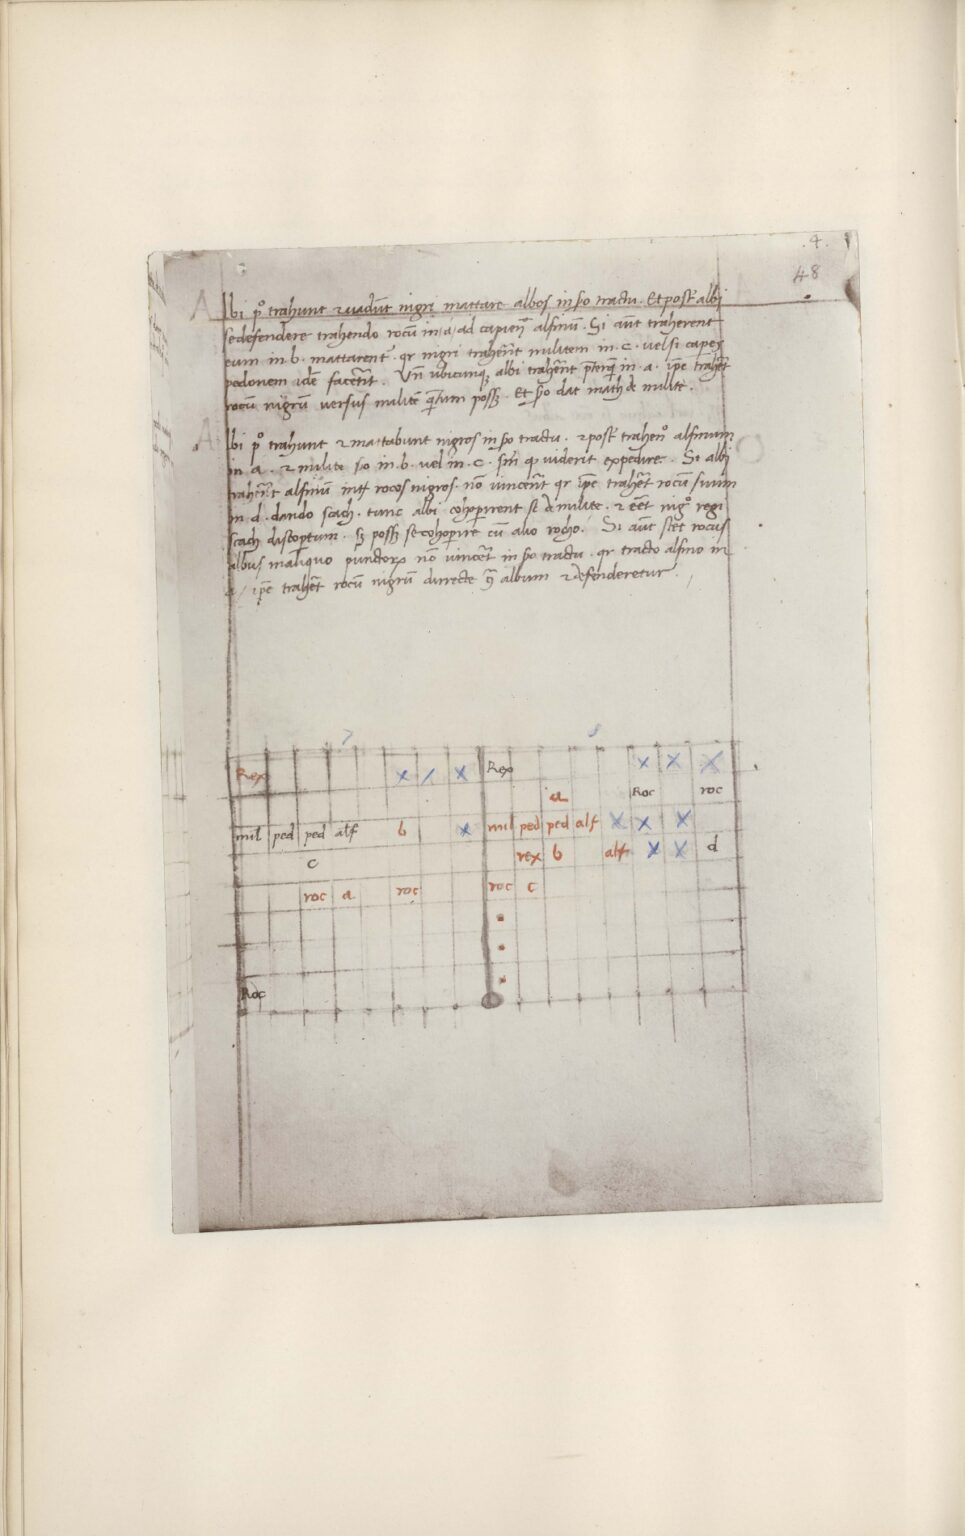 .4.
48
lbi pº trahunt et vadūt nigri mattare albos in sºo tractu. Et post albi
se defendere trahendo rocū in a ad capien alfinū. Si aūt traherent
eum in .b. mattarent qr nigri traherēt militem in .c. vel si caper
pedonem idē facerēt. Vn ubicunqȝ albi traherēt in .a. ipe traherēt
rocū nigrū versus militē posst. Et sºo dat math de milite.
lbi pº trahunt et mattabunt nigros in sºo tractu. et post trahenº alfinum
in .a. et milite sºo in .b. vel in .c. sm qº viderit expedire. Si albi
traherēt alfinū rocos nigros. nō vincerēt qr ipe traherēt rocū suum
in d. dando scach. tunc albi cohoperirent se de milite. et eēt nigº regi
scach discoptum. posst se cohoperire cū alio rocho. Si aūt stet rocus
albus in aliquo nō vincerēt in sºo tractu. qr tracto alfino in
a / ipe traherēt rocū nigrū directe album et defenderetur.
7 8
Rex x x x Rex x x x
a Roc roc
mil ped ped alf b x mil ped ped alf x x x
c rex b alf x x d
roc a roc roc c
Roc